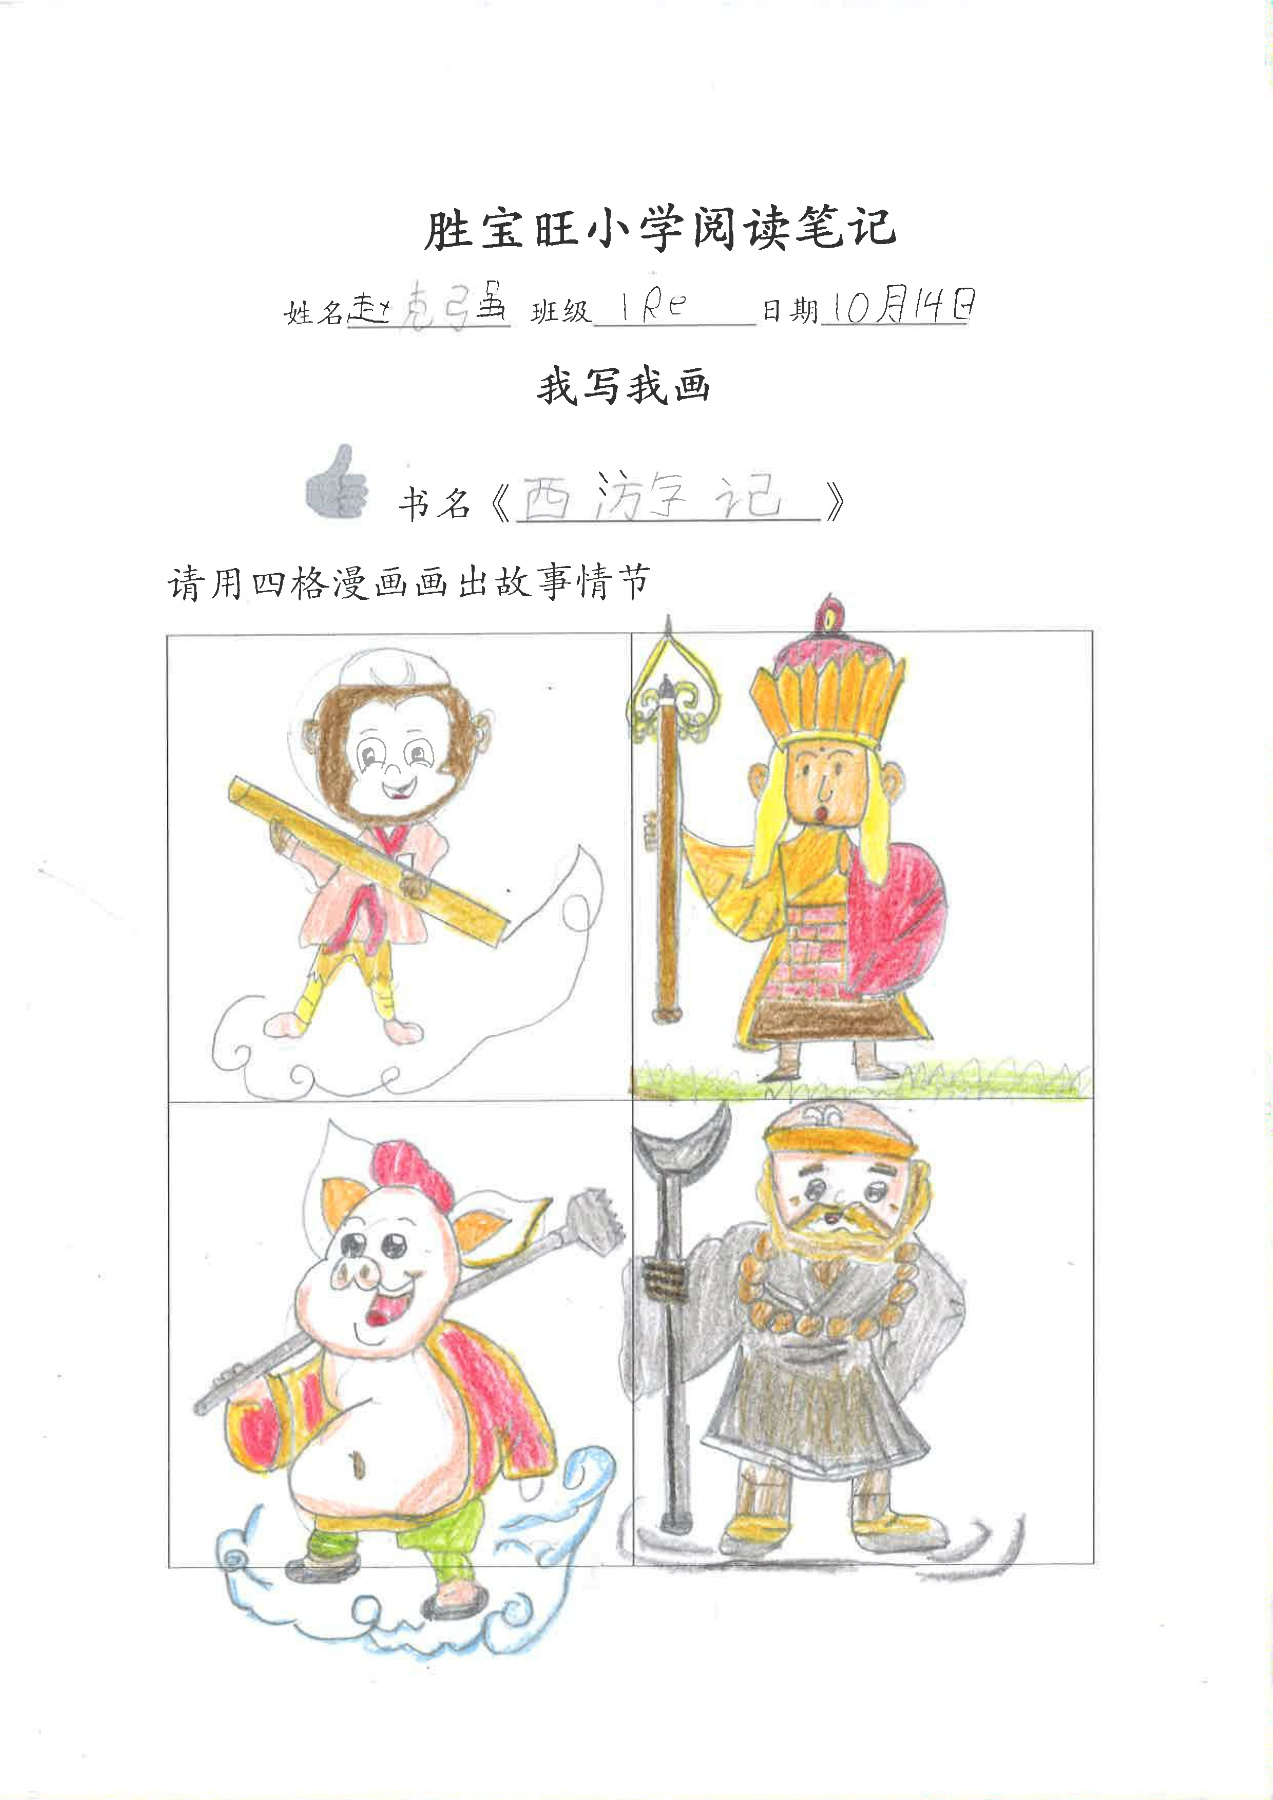 胜宝旺小学阅读笔记
姓名赵克强 班级 1Re 日期10月14日
我写我画
书名《西游记》
请用四格漫画画出故事情节